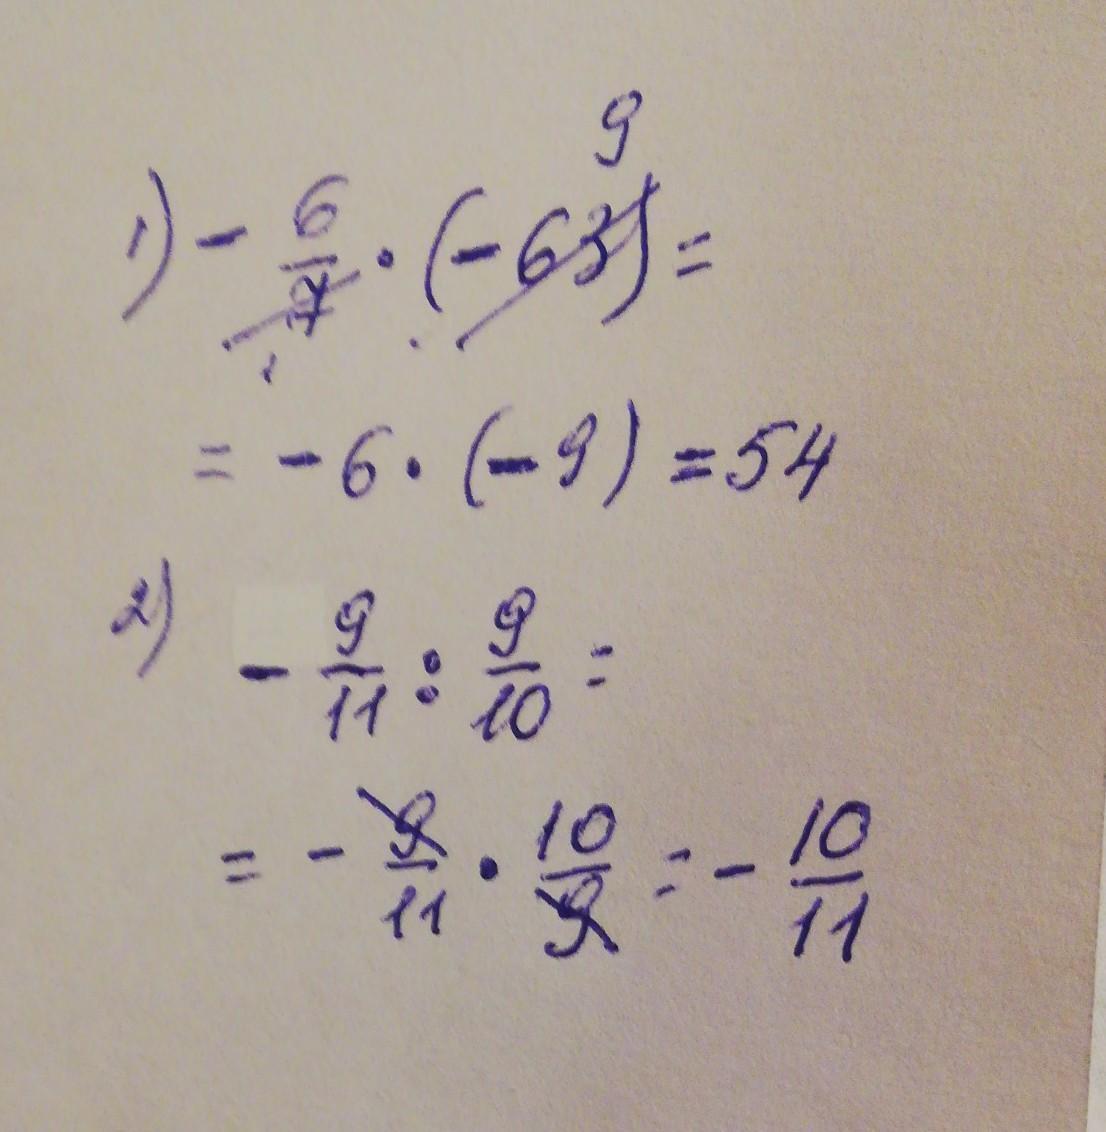 1) - 6/7 · (-63) = 9
= -6 · (-9) = 54
2) - 9/11 : 9/10 =
= - 9/11 · 10/9 = - 10/11